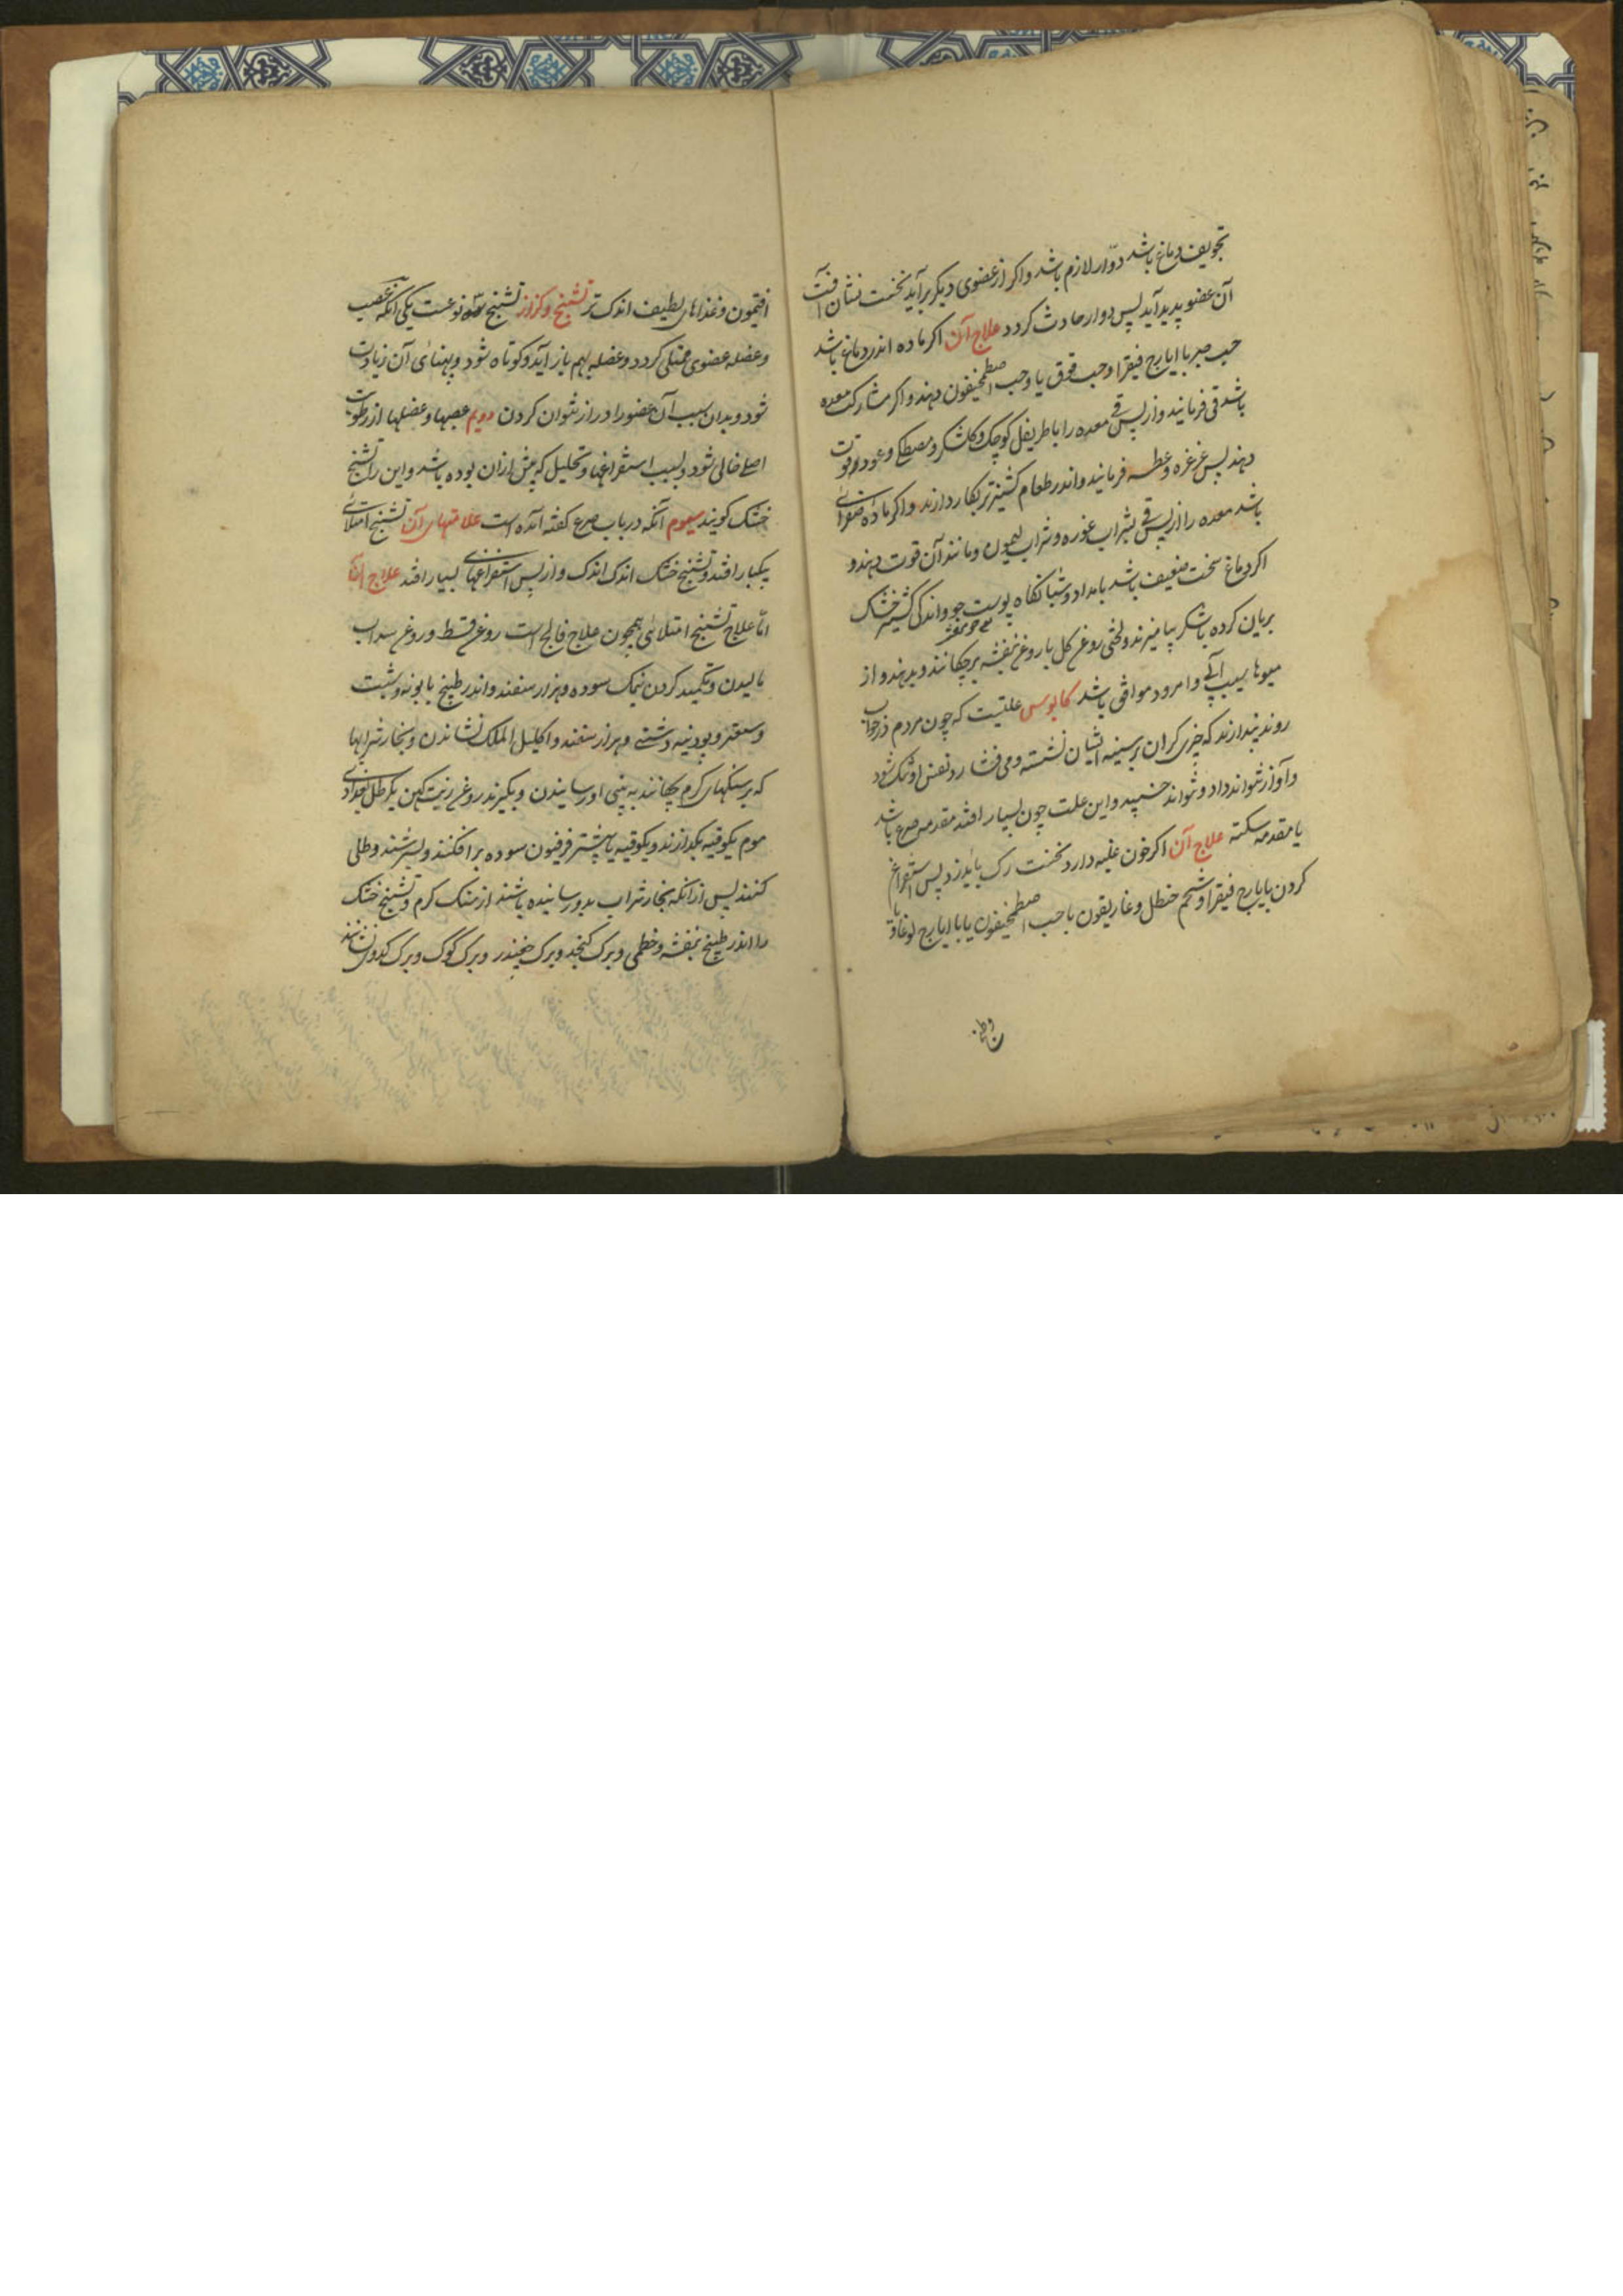 تجویف دماغ باشد دوّار لازم باشد و اکر از عضوی دیکر برآید نخست نشان آفت
آن عضو پدید آید پس دوار حادث کردد علاج آن اکر ماده اندر دماغ باشد
حب صبر با ایارج فیقرا و حب قوقیا و حب اصطمخیقون دهند و اکر مشارکت معده
باشد قی فرمانید و از پس قی معده را باطریفل کوچک و کلشکر و مصطکی و عود قوت
دهند پس غرغره و عطسه فرمانید و اندر طعام کشنیز تر بکار دارند و اکر ماده صفرائی
باشد معده را از پس قی بشراب غوره و شراب لیمون و مانند آن قوت دهند و
اکر دماغ سخت ضعیف باشد بامداد و شبانکاه پوست جو و اندکی کشنیز خشک
بریان کرده با شکر بیامیزند و لختی روغن کل با روغن بنفشه برچکانند و بدهند و از
میوها سیب و آبی و امرود موافق باشد کابوس علتیست که چون مردم در خواب
روند پندارند که چیزی کران بر سینه ایشان نشسته و می فشارد و نفس او تنک شود
و آواز نتواند داد و نتواند جنبید و این علت چون بسیار افتد مقدمه صرع باشد
یا مقدمه سکته علاج آن اکر خون غلبه دارد نخست رک باید زد پس استفراغ
کردن بایارج فیقرا و شحم حنظل و غاریقون یا حب اصطمخیقون یا با ایارج لوغاذیا
افتیمون و غذاهای لطیف اندک تر تشنج و کزاز تشنج سه نوعست یکی آنکه عصب
و عضله عضوی ممتلی کردد و عضله بهم باز آید و کوتاه شود و پهنائی آن زیادت
شود و بدان سبب آن عضو را دراز نتوان کردن دویم عصبها و عضلها از رطوبت
اصلی خالی شود و بسبب استفراغها و تحلیل که پیش ازان بوده باشد و این را تشنج
خشک کویند سیوم آنکه در باب صرع کفته آمده است علامتهای آن تشنج امتلائی
یکبار افتد و تشنج خشک اندک اندک و از پس استفراغهای بسیار افتد علاج آن
امّا علاج تشنج امتلائی همچون علاج فالج است روغن قسط و روغن سداب
مالیدن و تکمید کردن نمک سوده و هزار سفند و اندر طبیخ بابونه و شبت
و سعتر و پودنه دشتی و هزار سفند و اکلیل الملک نشاندن و بخار شرابها
که بر سنکهای کرم چکانند به بینی او رسانیدن و بکیرند روغن زیت کهن یکرطل بغدادی
موم یکوقیه بکدازند و یکوقیه یا بیشتر فرفیون سوده برافکنند و بسرشند و طلی
کنند پس ازانکه بخار شراب بدو رسانیده باشند از سنک کرم و تشنج خشک
را اندر طبیخ بنفشه و خطمی و برک کنجد و برک چغندر و برک کوک و برک کدو نشانند